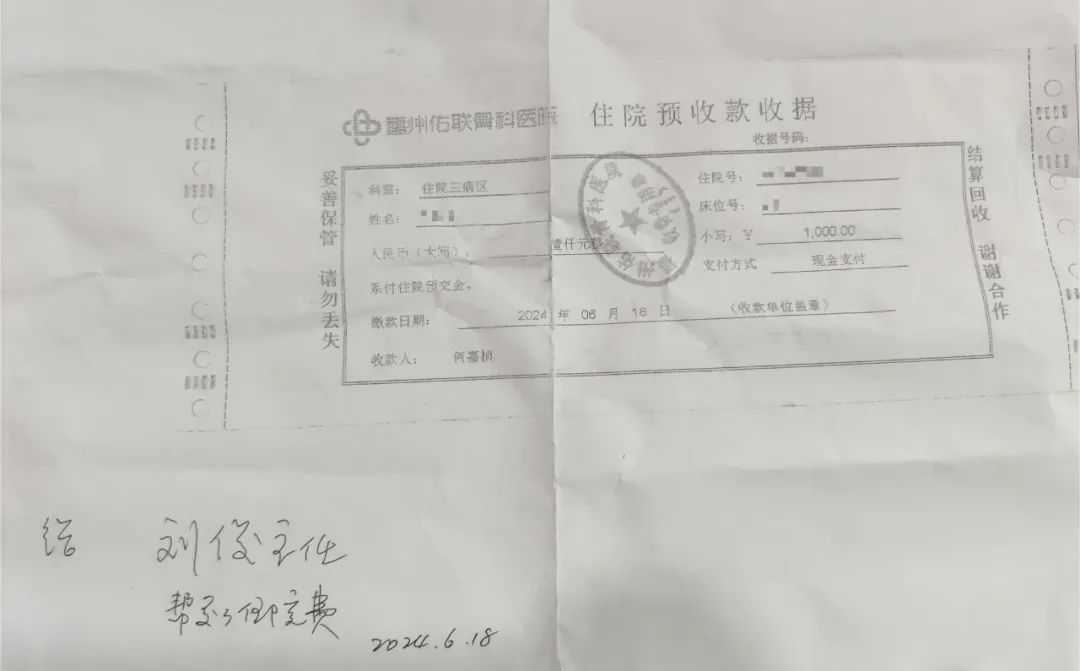 福州佑联骨科医院 住院预收款收据
收据号码:
妥善保管 请勿丢失
科室: 住院三病区
住院号:
姓名:
床位号:
人民币（大写）: 壹仟元整
小写: ¥ 1,000.00
系付住院预交金。
支付方式 现金支付
缴款日期: 2024 年 06 月 18 日 (收款单位盖章)
收款人: 何嘉桢
结算回收 谢谢合作
给 刘俊主任
帮交了住院费
2024.6.18